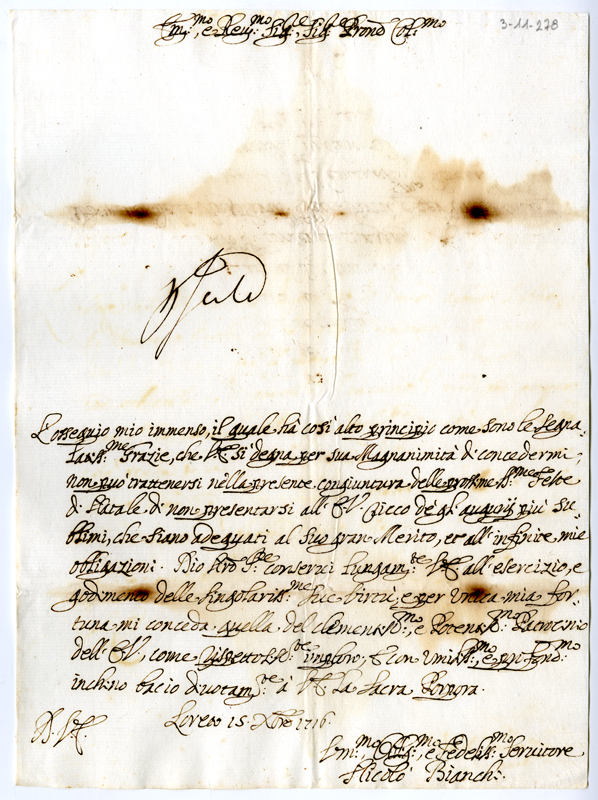 Em.mo, e Rev.mo Sig.re, Sig.re Pron̄e Col.mo
3-11-278
L'ossequio mio immenso, il quale hà così alto principio come sono le segna-
latiss.me Grazie, che V.E. si degna per sua Magnanimità di concedermi,
non può trattenersi nella presente congiuntura delle prossime S.me Feste
di Natale di non presentarsi all'E.V. ricco de gl'augurij più su-
blimi, che siano adeguati al suo gran Merito, et all'infinite mie
obligazioni. Dio Sig.re conservi lungam.te V.E. all'esercizio, e
godimento delle singolariss.me sue virtù, e per unica mia for-
tuna mi conceda quella del clementiss.mo, e Potentiss.mo Patrocinio
dell'E.V. come imploro, e con umiliss.mo, e profond.mo
inchino bacio divotam.te à V.E. la Sacra Porpora.
Loreto 15. Xbre 1716.
D. V.E.
Um.mo, e Fedeliss.mo Servitore
Nicolò Bianchi.